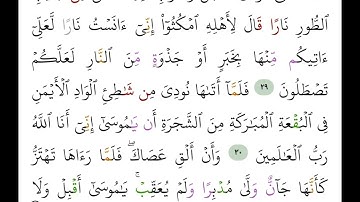 ٱلطُّورِ نَارًا قَالَ لِأَهْلِهِ ٱمْكُثُوٓا۟ إِنِّىٓ ءَانَسْتُ نَارًا لَّعَلِّىٓ
ءَاتِيكُم مِّنْهَا بِخَبَرٍ أَوْ جَذْوَةٍ مِّنَ ٱلنَّارِ لَعَلَّكُمْ
تَصْطَلُونَ ٢٩ فَلَمَّآ أَتَىٰهَا نُودِىَ مِن شَـٰطِئِ ٱلْوَادِ ٱلْأَيْمَنِ
فِى ٱلْبُقْعَةِ ٱلْمُبَـٰرَكَةِ مِنَ ٱلشَّجَرَةِ أَن يَـٰمُوسَىٰٓ إِنِّىٓ أَنَا ٱللَّهُ
رَبُّ ٱلْعَـٰلَمِينَ ٣٠ وَأَنْ أَلْقِ عَصَاكَ ۖ فَلَمَّا رَءَاهَا تَهْتَزُّ
كَأَنَّهَا جَآنٌّ وَلَّىٰ مُدْبِرًا وَلَمْ يُعَقِّبْ ۚ يَـٰمُوسَىٰٓ أَقْبِلْ وَلَا